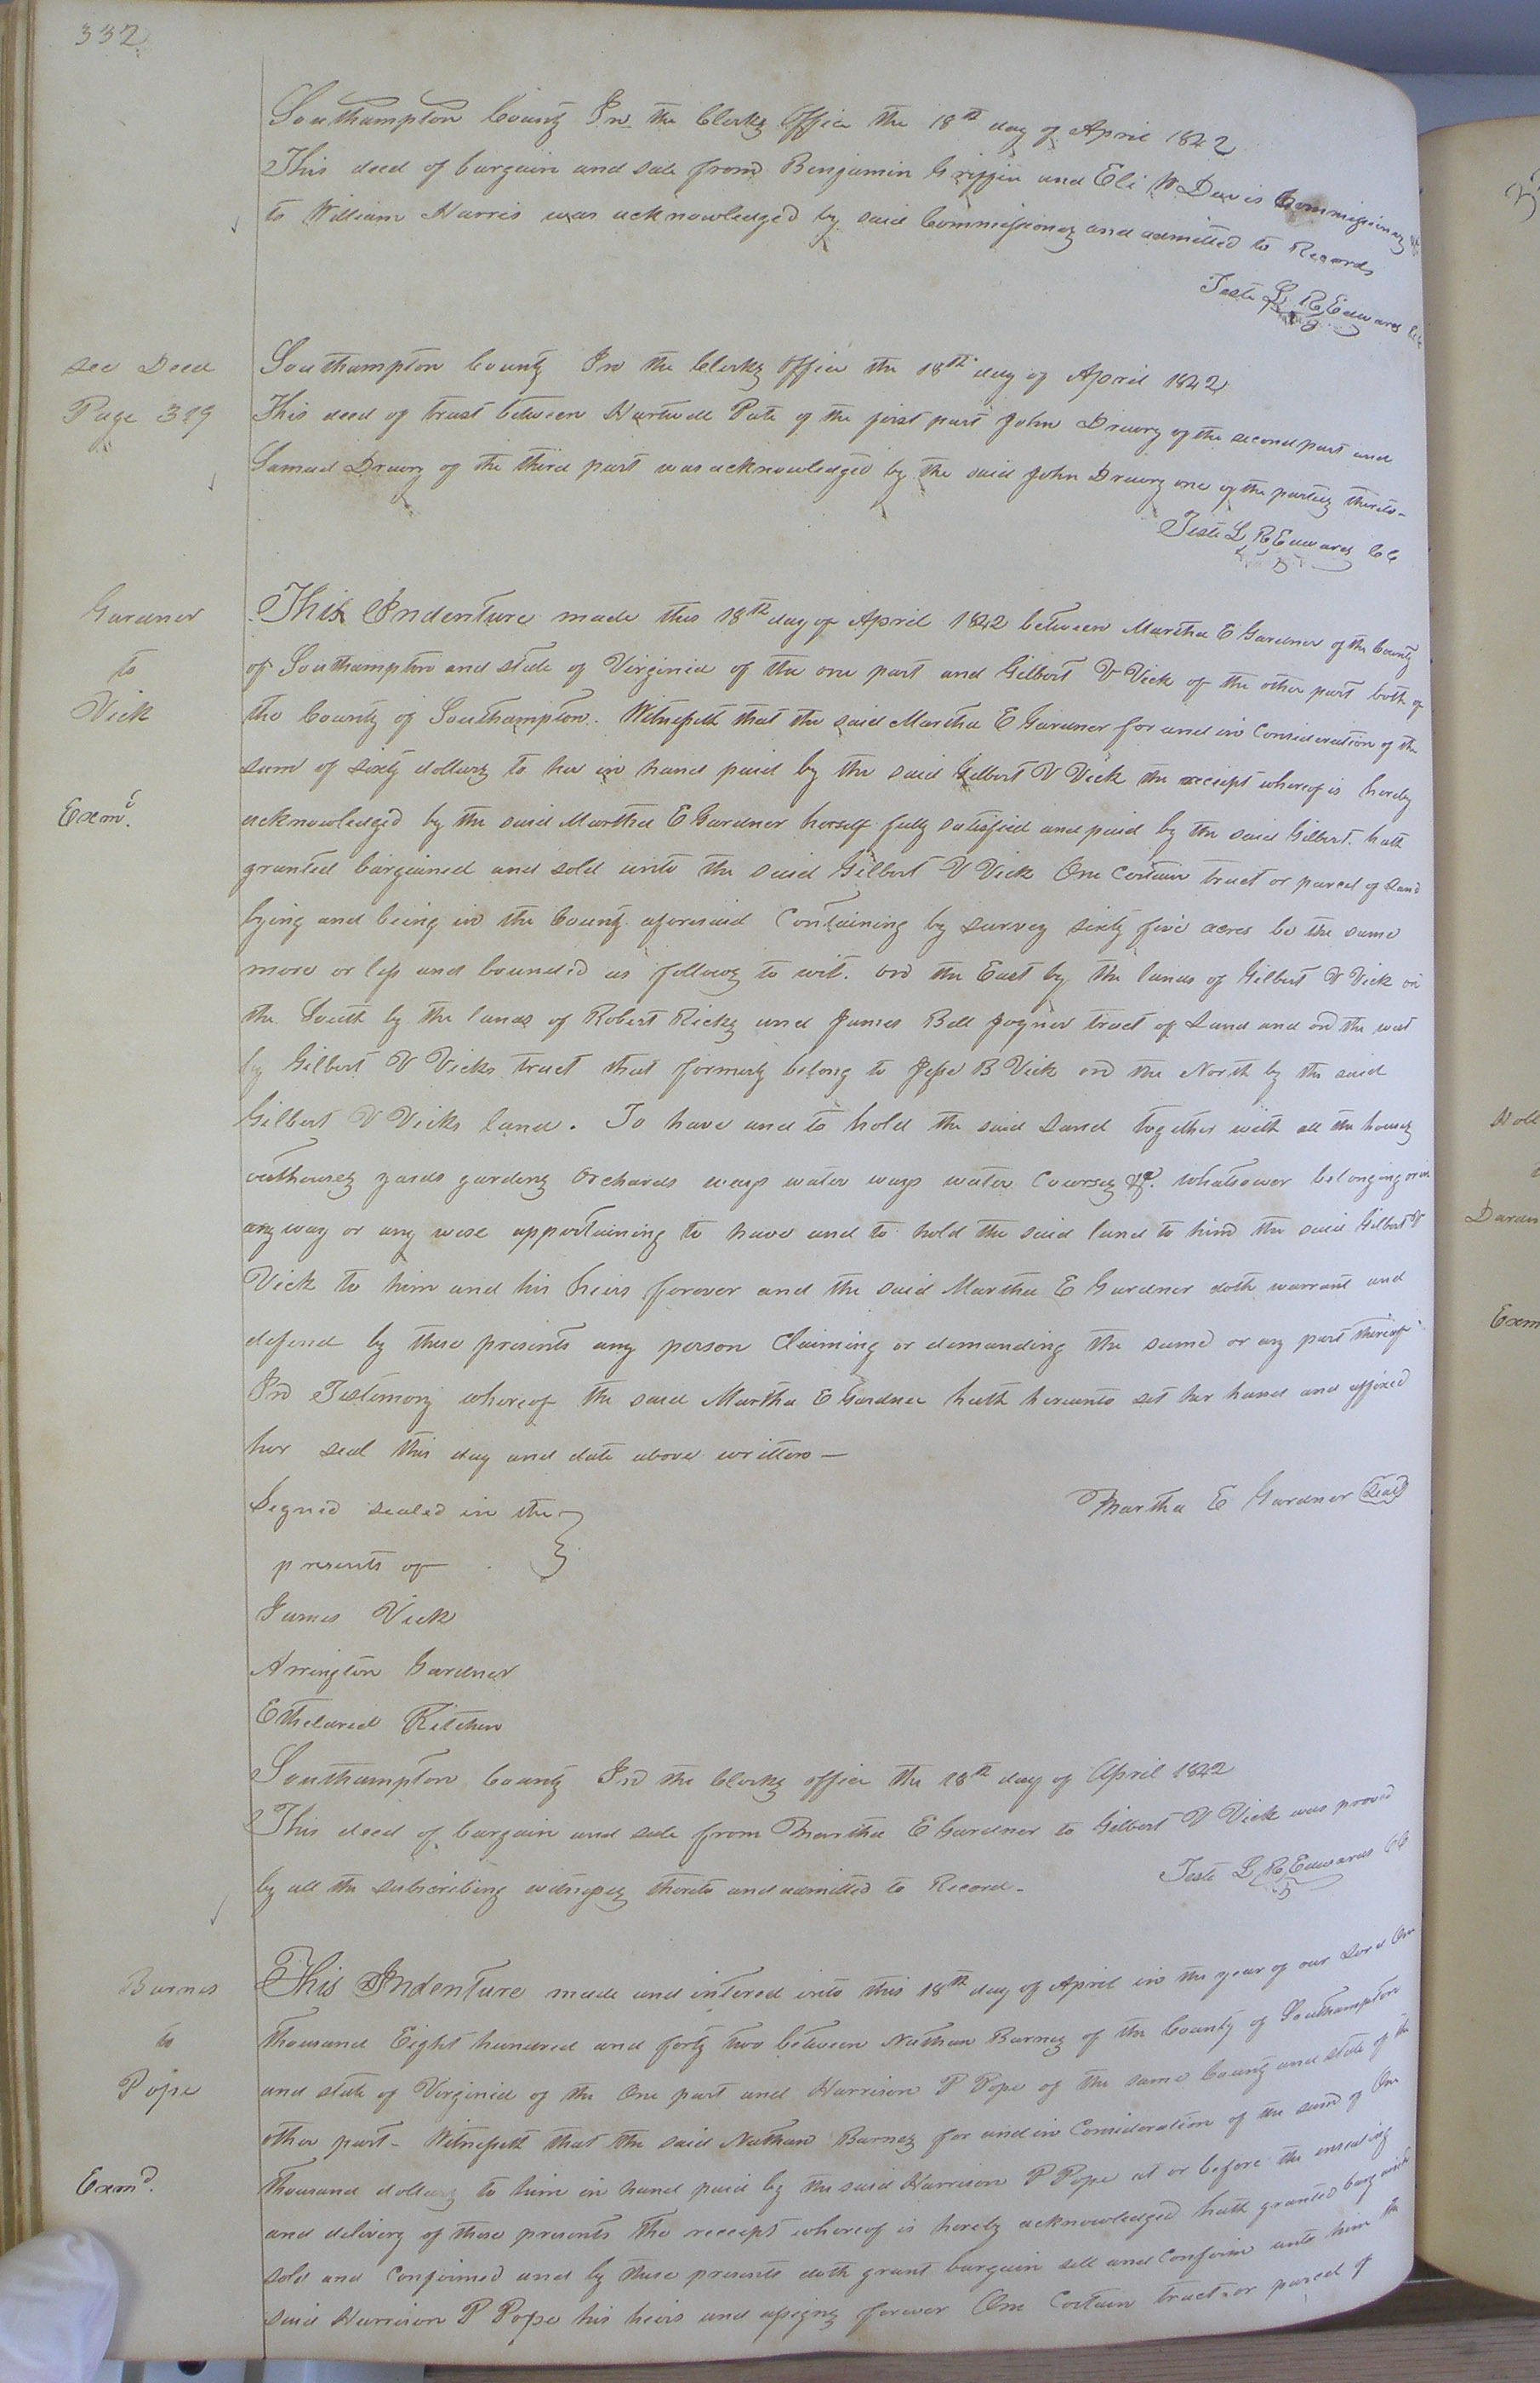 332
Southampton County In the Clerks Office the 18th day of April 1842
This deed of bargain and sale from Benjamin Griffin and Eli W Davis Commissioners
to William Harris was acknowledged by said Commissioners and admitted to Records
Teste L R Edwards
See Deed
Page 329
Southampton County In the Clerks Office the 18th day of April 1842
This deed of trust between Hartwell Pate of the first part John Drewry of the second part and
Samuel Drewry of the third part was acknowledged by the said John Drewry one of the parties thereto-
Teste L R Edwards CC
Gardner
to
Vick
Exmd.
This Indenture made this 18th day of April 1842 between Martha E Gardner of the County
of Southampton and state of Virginia of the one part and Gilbert V Vick of the other part both of
the County of Southampton. Witnesseth that the said Martha E Gardner for and in Consideration of the
sum of sixty dollars to her in hand paid by the said Gilbert V Vick the receipt whereof is hereby
acknowledged by the said Martha E Gardner herself fully satisfied and paid by the said Gilbert. hath
granted bargained and sold unto the said Gilbert V Vick One Certain tract or parcel of Land
lying and being in the County aforesaid Containing by survey sixty five acres be the same
more or less and bounded as follows to wit. on the East by the lands of Gilbert V Vick on
the South by the lands of Robert Ricks and James Bell Joyner tract of Land and on the west
by Gilbert V Vicks tract that formerly belong to Jesse B Vick on the North by the said
Gilbert V Vicks land. To have and to hold the said Land together with all the houses
outhouses yards gardens Orchards ways water ways water Courses &c. whatsoever belonging or in
any way or any wise appertaining to have and to hold the said land to him the said Gilbert V
Vick to him and his heirs forever and the said Martha E Gardner doth warrant and
defend by these presents any person Claiming or demanding the same or any part thereof
In Testimony whereof the said Martha E Gardner hath hereunto set her hand and affixed
her seal this day and date above written —
Martha E Gardner (Seal)
Signed sealed in the
presents of
James Vick
Arrington Gardner
Ethelared Kitchen
Southampton County In the Clerks office the 18th day of April 1842
This deed of bargain and sale from Martha E Gardner to Gilbert V Vick was proved
by all the subscribing witnesses thereto and admitted to Record-
Teste L R Edwards CC
Barnes
to
Pope
Exmd.
This Indenture made and intered into this 18th day of April in the year of our Lord One
thousand Eight hundred and forty two between Nathan Barnes of the County of Southampton
and state of Virginia of the One part and Harrison P Pope of the same County and state of the
other part- Witnesseth that the said Nathan Barnes for and in Consideration of the sum of One
thousand dollars to him in hand paid by the said Harrison P Pope at or before the ensealing
and delivery of these presents the receipt whereof is hereby acknowledged hath granted bargained
sold and Confirmed and by these presents doth grant bargain sell and Confirm unto him the
said Harrison P Pope his heirs and assigns forever One Certain tract or parcel of